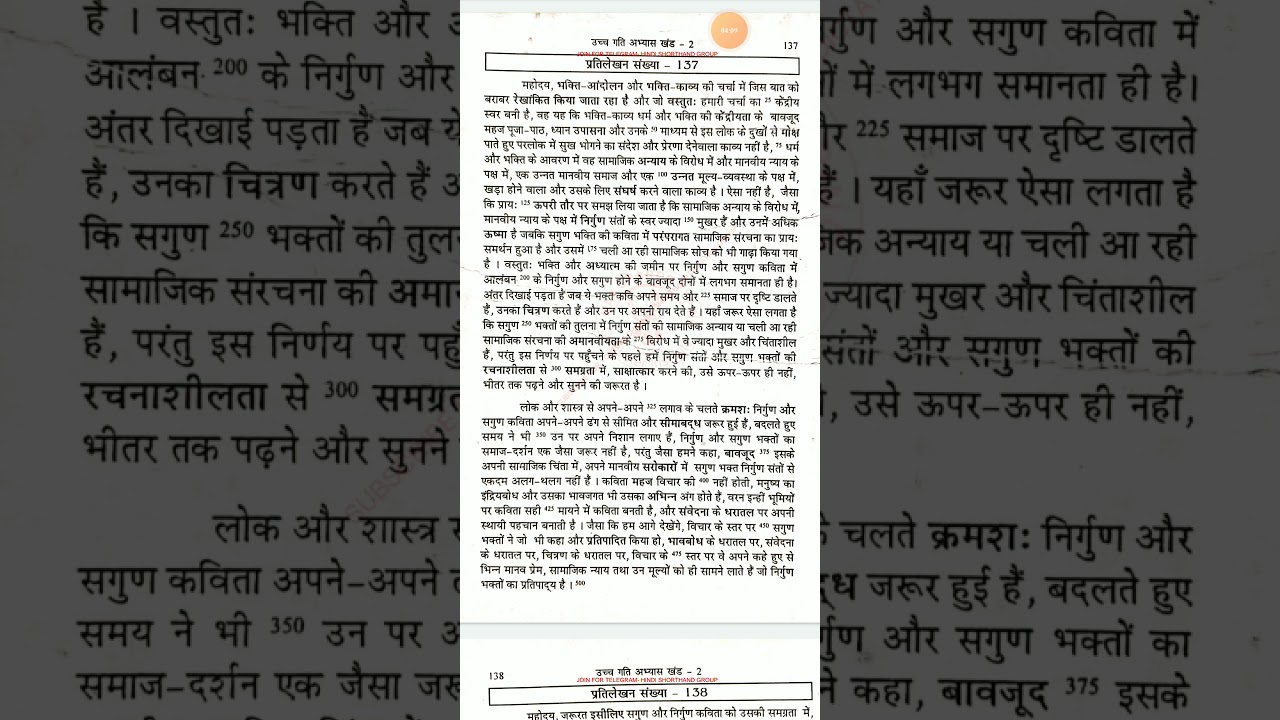 04:09
उच्च गति अभ्यास खंड - 2
137
JOIN FOR TELEGRAM- HINDI SHORTHAND GROUP
प्रतिलेखन संख्या - 137
महोदय, भक्ति-आंदोलन और भक्ति-काव्य की चर्चा में जिस बात को
बराबर रेखांकित किया जाता रहा है और जो वस्तुतः हमारी चर्चा का 25 केंद्रीय
स्वर बनी है, वह यह कि भक्ति-काव्य धर्म और भक्ति की केंद्रीयता के बावजूद
महज पूजा-पाठ, ध्यान उपासना और उनके 50 माध्यम से इस लोक के दुखों से मोक्ष
पाते हुए परलोक में सुख भोगने का संदेश और प्रेरणा देनेवाला काव्य नहीं है, 75 धर्म
और भक्ति के आवरण में वह सामाजिक अन्याय के विरोध में और मानवीय न्याय के
पक्ष में, एक उन्नत मानवीय समाज और एक 100 उन्नत मूल्य-व्यवस्था के पक्ष में,
खड़ा होने वाला और उसके लिए संघर्ष करने वाला काव्य है । ऐसा नहीं है, जैसा
कि प्रायः 125 ऊपरी तौर पर समझ लिया जाता है कि सामाजिक अन्याय के विरोध में,
मानवीय न्याय के पक्ष में निर्गुण संतों के स्वर ज्यादा 150 मुखर हैं और उनमें अधिक
ऊष्मा है जबकि सगुण भक्ति की कविता में परंपरागत सामाजिक संरचना का प्रायः
समर्थन हुआ है और उसमें 175 चली आ रही सामाजिक सोच को भी गाढ़ा किया गया
है । वस्तुतः भक्ति और अध्यात्म की जमीन पर निर्गुण और सगुण कविता में
आलंबन 200 के निर्गुण और सगुण होने के बावजूद दोनों में लगभग समानता ही है।
अंतर दिखाई पड़ता है जब ये भक्त कवि अपने समय और 225 समाज पर दृष्टि डालते
हैं, उनका चित्रण करते हैं और उन पर अपनी राय देते हैं । यहाँ जरूर ऐसा लगता है
कि सगुण 250 भक्तों की तुलना में निर्गुण संतों की सामाजिक अन्याय या चली आ रही
सामाजिक संरचना की अमानवीयता के 275 विरोध में वे ज्यादा मुखर और चिंताशील
हैं, परंतु इस निर्णय पर पहुँचने के पहले हमें निर्गुण संतों और सगुण भक्तों की
रचनाशीलता से 300 समग्रता में, साक्षात्कार करने की, उसे ऊपर-ऊपर ही नहीं,
भीतर तक पढ़ने और सुनने की जरूरत है ।
लोक और शास्त्र से अपने-अपने 325 लगाव के चलते क्रमशः निर्गुण और
सगुण कविता अपने-अपने ढंग से सीमित और सीमाबद्ध जरूर हुई हैं, बदलते हुए
समय ने भी 350 उन पर अपने निशान लगाए हैं, निर्गुण और सगुण भक्तों का
समाज-दर्शन एक जैसा जरूर नहीं है, परंतु जैसा हमने कहा, बावजूद 375 इसके
अपनी सामाजिक चिंता में, अपने मानवीय सरोकारों में सगुण भक्त निर्गुण संतों से
एकदम अलग-थलग नहीं हैं । कविता महज विचार की 400 नहीं होती, मनुष्य का
इंद्रियबोध और उसका भावजगत भी उसका अभिन्न अंग होते हैं, वरन इन्हीं भूमियों
पर कविता सही 425 मायने में कविता बनती है, और संवेदना के धरातल पर अपनी
स्थायी पहचान बनाती है । जैसा कि हम आगे देखेंगे, विचार के स्तर पर 450 सगुण
भक्तों ने जो भी कहा और प्रतिपादित किया हो, भावबोध के धरातल पर, संवेदना
के धरातल पर, चित्रण के धरातल पर, विचार के 475 स्तर पर वे अपने कहे हुए से
भिन्न मानव प्रेम, सामाजिक न्याय तथा उन मूल्यों को ही सामने लाते हैं जो निर्गुण
भक्तों का प्रतिपाद्य है । 500
138
उच्च गति अभ्यास खंड - 2
JOIN FOR TELEGRAM- HINDI SHORTHAND GROUP
प्रतिलेखन संख्या - 138
महोदय, जरूरत इसीलिए सगुण और निर्गुण कविता को उसकी समग्रता में,